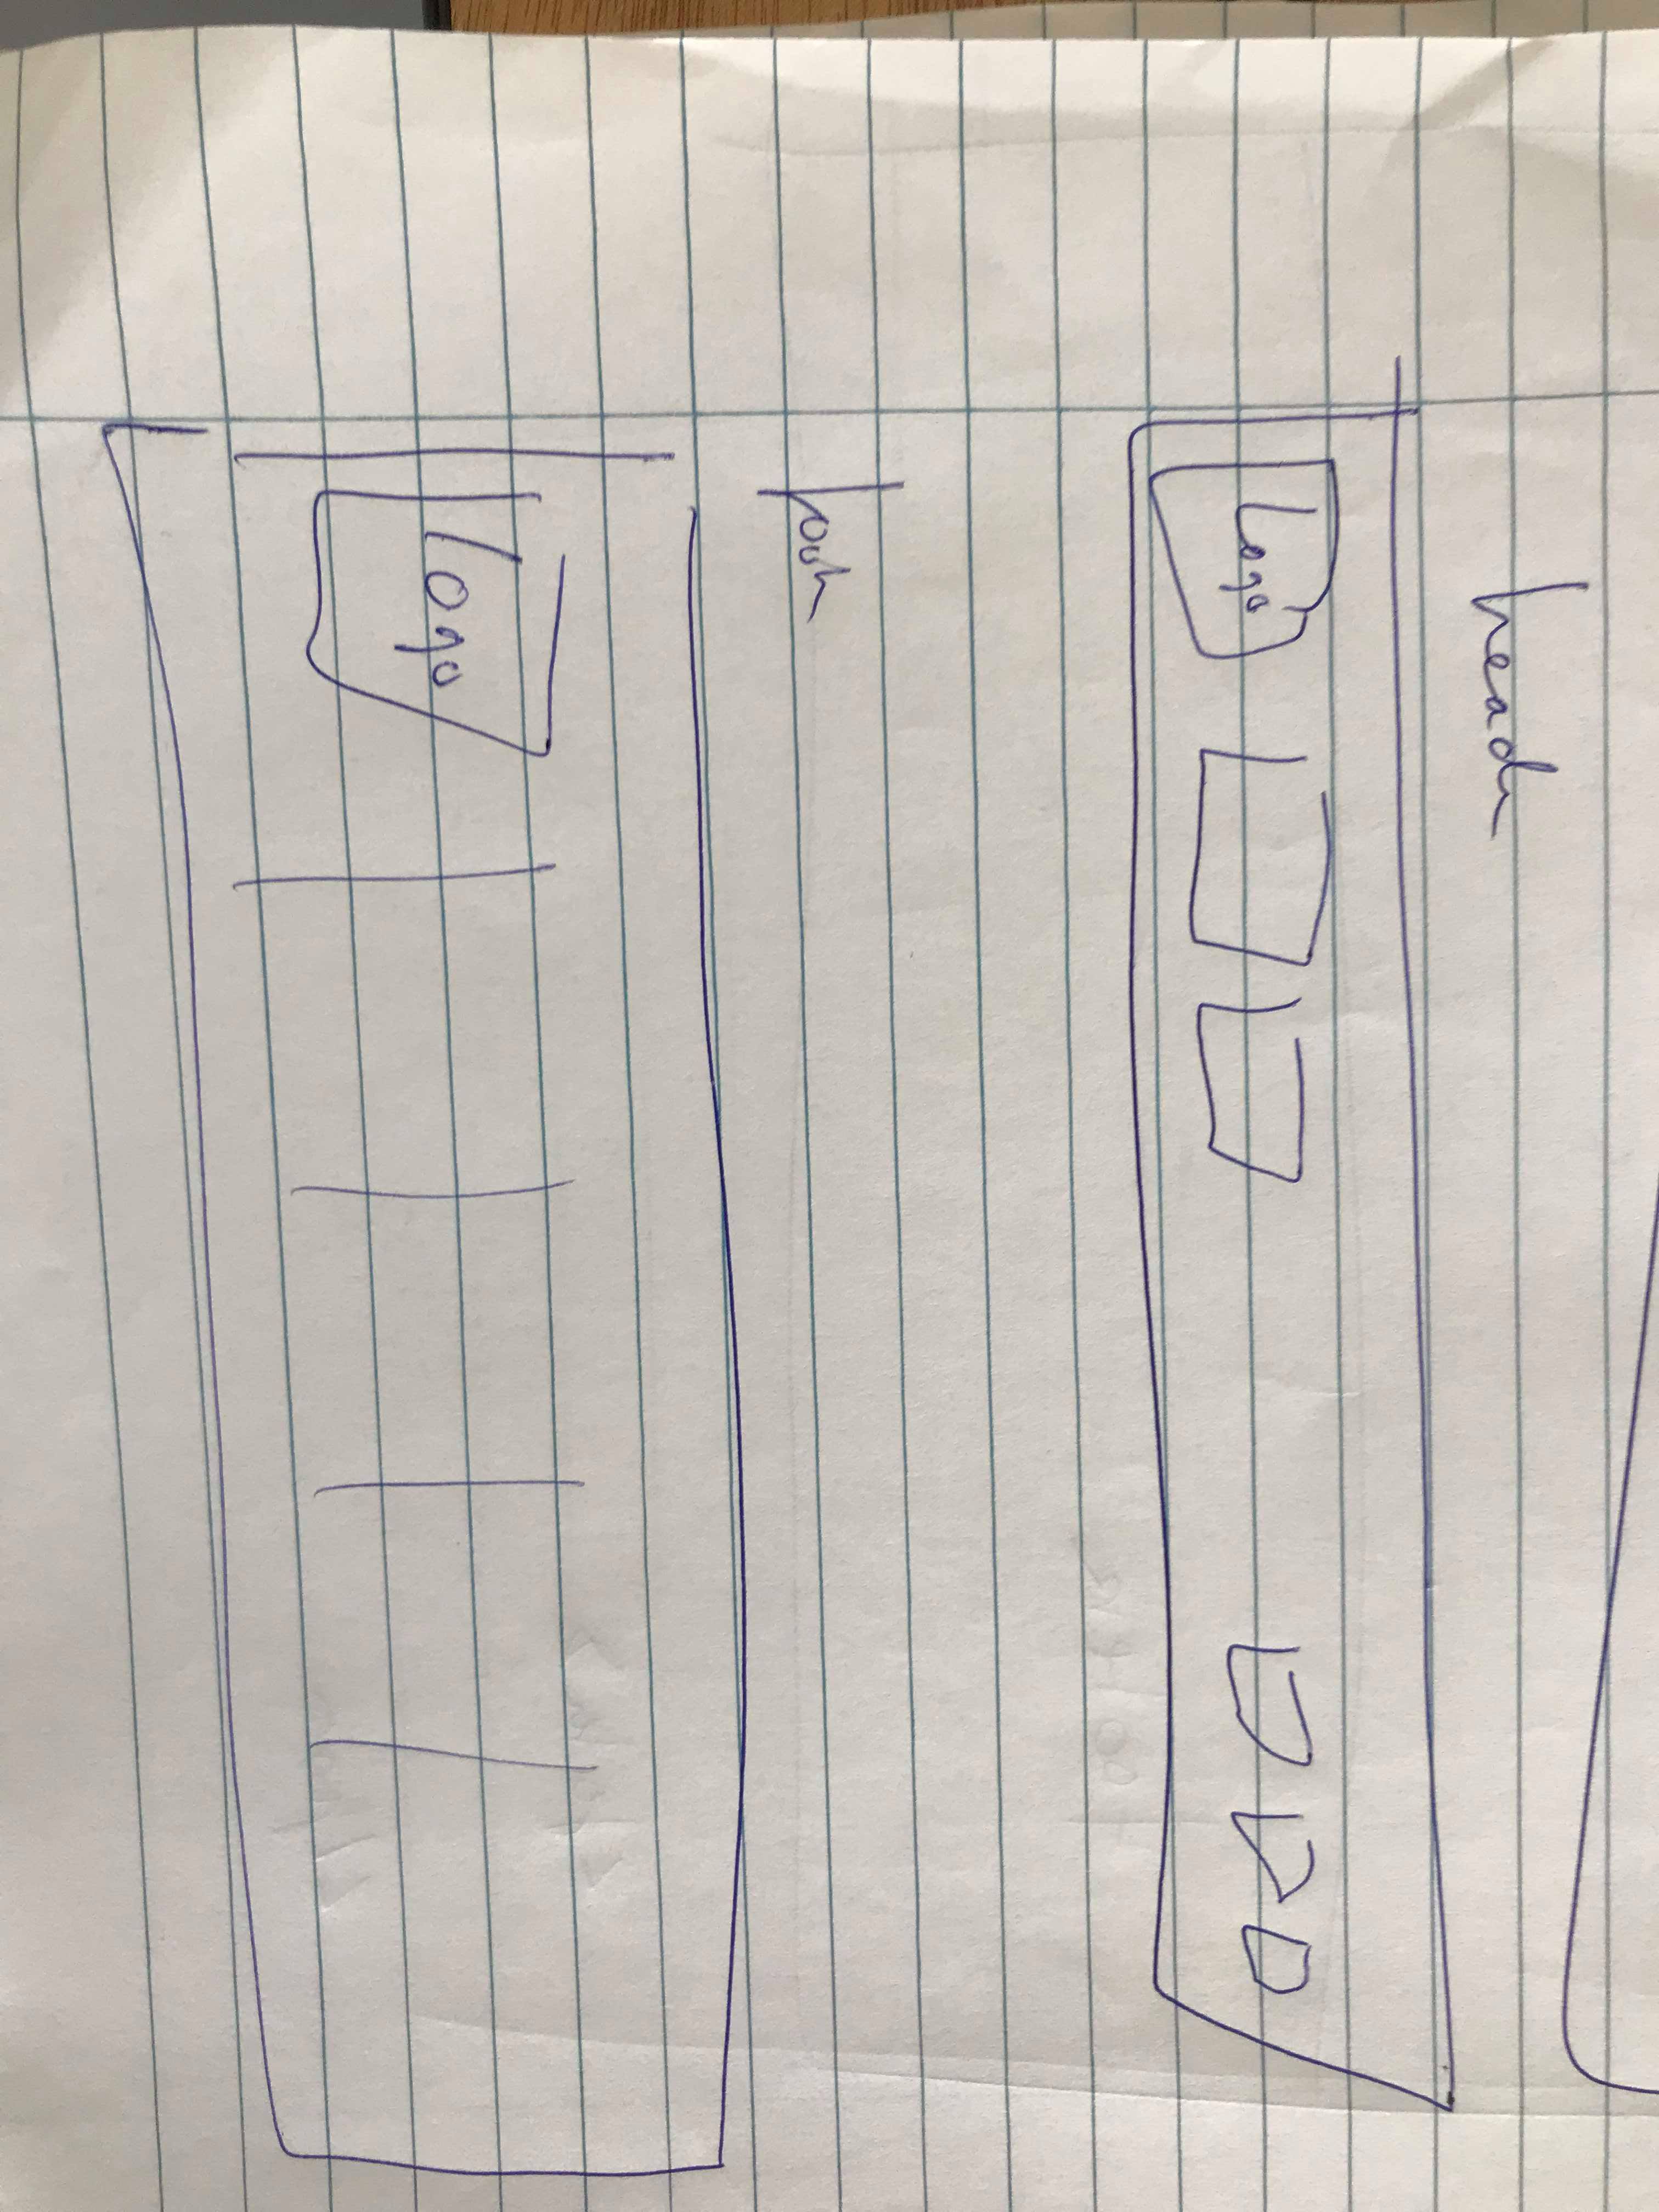 header
Logo
footer
Logo